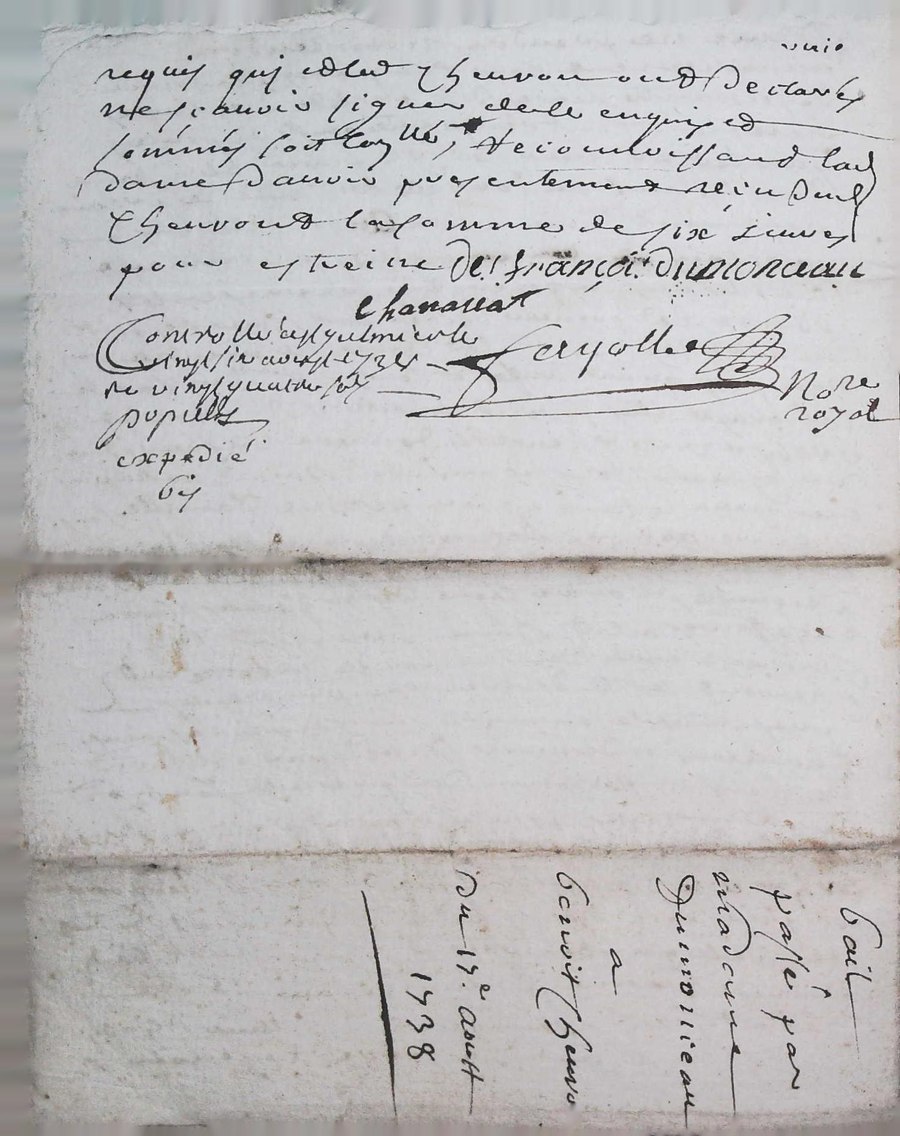 requis qui et led Theuvon ont Declarés
ne scavoir signer de le enquis et
sommés soit Conllé, Reconnoissand lad
dame d'avoir presentement reçu dud
Theuvont la somme de six livres
pour estreine de françoi dumonceau
Chanaliat
Controllé a st galmier le
vingt six aoust 1738
Re vingt quatre sols
expedié
fayolle
No.re
royal
bail
passé par
madame
Dumonceau
a
benoit theuvo
Du 17e aoust
1738